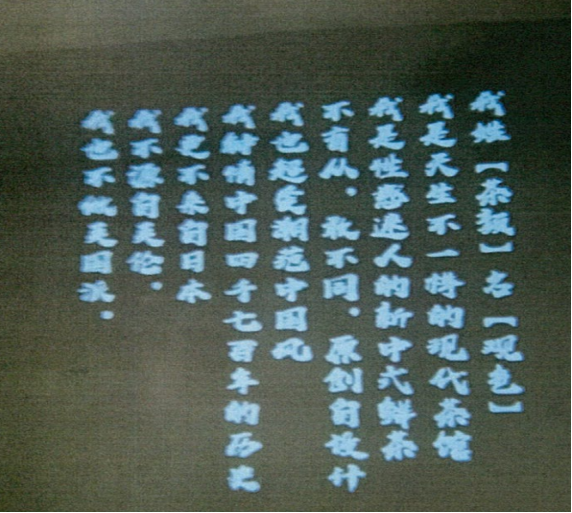 我姓【茶颜】名【观色】
我是天生不一样的现代茶馆
我是性感迷人的新中式鲜茶
不盲从。敢不同。原创自设计
我也起危潮范中国风
我钟情中国四千七百年的历史
我更不来自日本
我不源自天伦。
我也不似美国派。